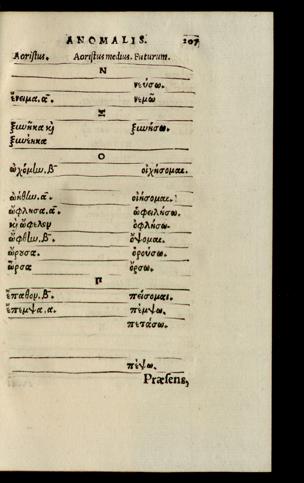 ANOMALIS. 207
Aoristus. Aoristus medius. Futurum.
Ν
νεύσω.
ἔνειμα. α´. νεμῶ
Ξ
ξυνῆκα καὶ ξυνήσω.
ξυνέηκα
Ο
ᾠχόμην. β´ οἰχήσομαι.
ᾠήθην. α´. οἰήσομαι.
ὤφλησα. α´. ὠφειλήσω.
καὶ ὤφελον ὀφλήσω.
ὤφθην. β´. ὄψομαι.
ὤρουσα. ὀρούσω.
ὦρσα ὄρσω.
Π
ἔπαθον. β´. πείσομαι.
ἔπεμψα. α. πέμψω.
πετάσω.
πέψω.
Præsens,